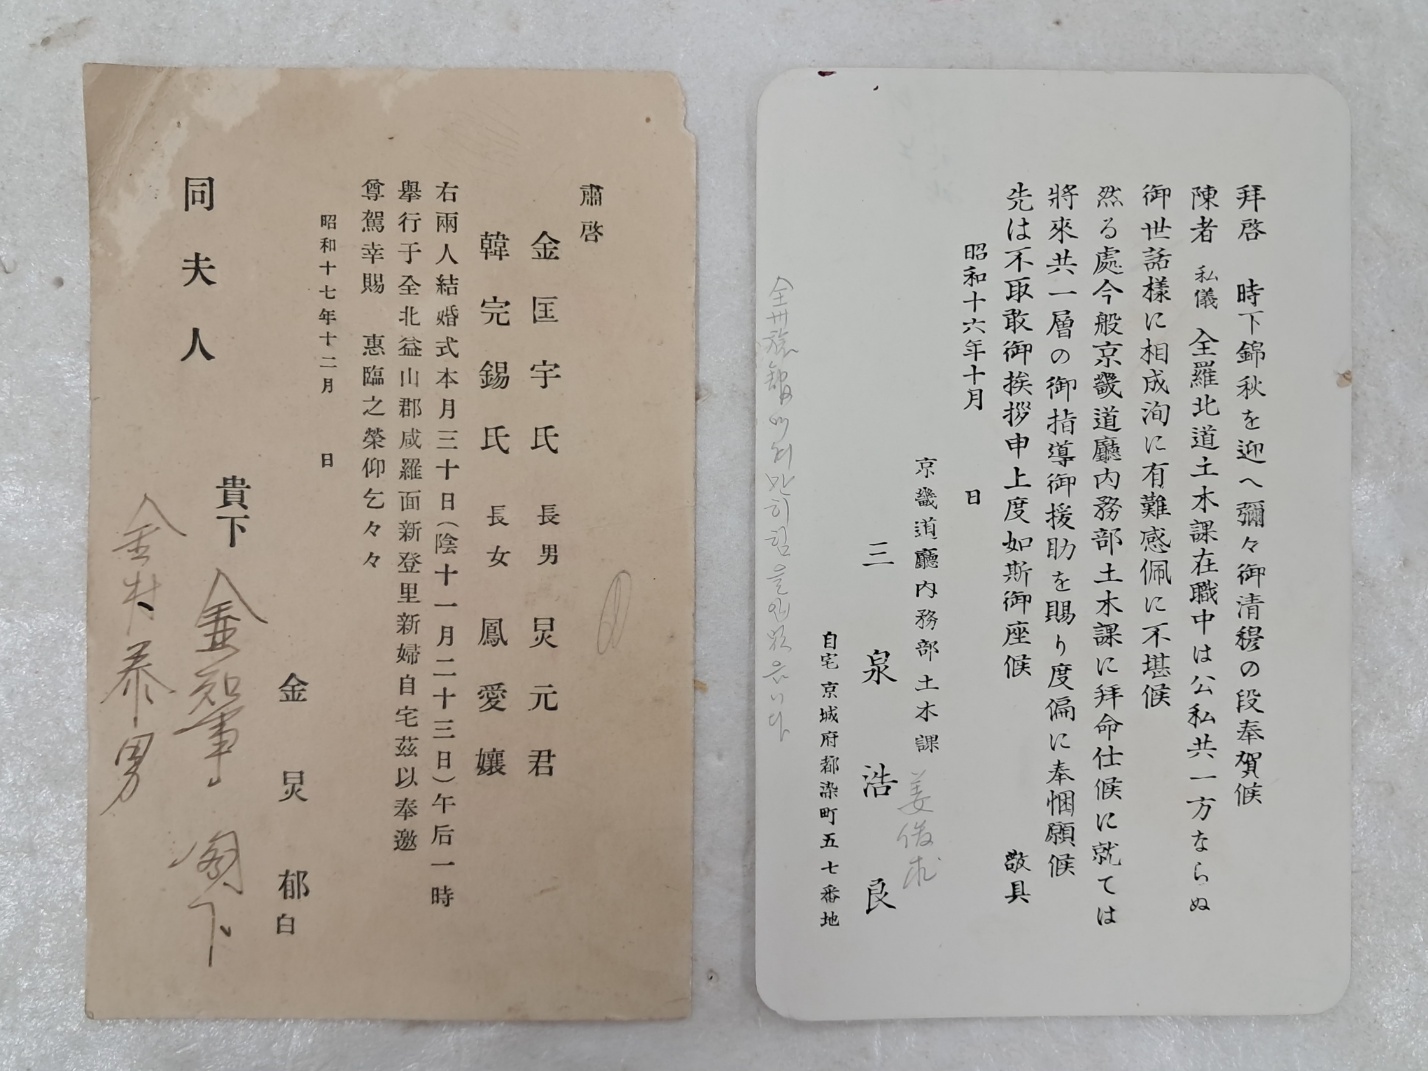 拜啓　時下錦秋を迎へ彌々御清穆の段奉賀候
陳者 私儀 全羅北道土木課在職中は公私共一方ならぬ
御世話樣に相成洵に有難感佩に不堪候
然る處今般京畿道廳內務部土木課に拜命仕候に就ては
將來共一層の御指導御援助を賜り度偏に奉悃願候
先は不取敢御挨拶申上度如斯御座候　敬具
昭和十六年十月　日
京畿道廳內務部土木課
三泉浩良
姜
自宅 京城府都染町五七番地
全州旅館
肅啓
金匡宇氏 長男 炅元君
韓完錫氏 長女 鳳愛孃
右兩人結婚式本月三十日(陰十一月二十三日)午后一時
擧行于全北益山郡咸羅面新登里新婦自宅茲以奉邀
尊駕幸賜　惠臨之榮仰乞々々
昭和十七年十二月　日
金炅郁 白
貴下
金知事 閣下
同夫人
金村泰男